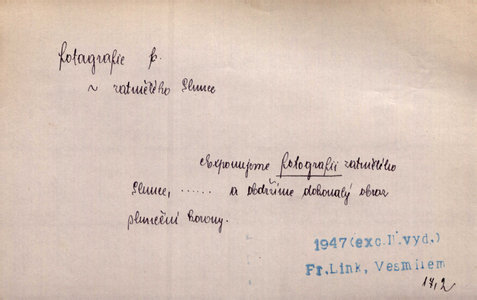 fotografie f.
~ zatmělého Slunce
exponujeme fotografii zatmělého
Slunce, ...... a obdržíme dokonalý obraz
sluneční korony.
1947 (exc. II. vyd.)
Fr. Link, Vesmírem
17,2